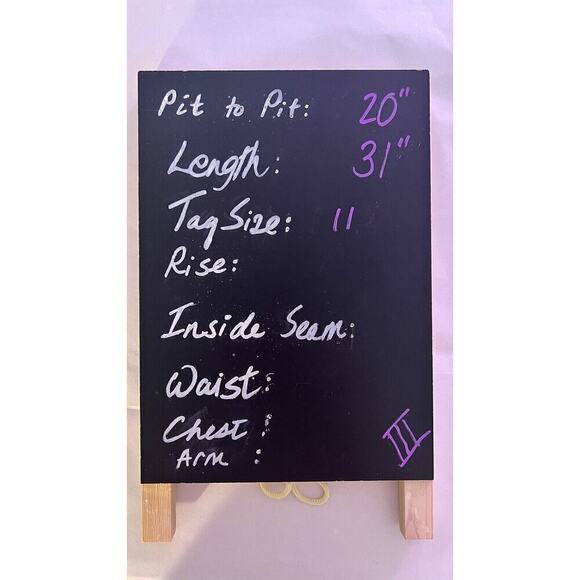 Pit to Pit: 20"
Length: 31"
Tag Size: 11
Rise:
Inside Seam:
Waist:
Chest:
Arm :
III